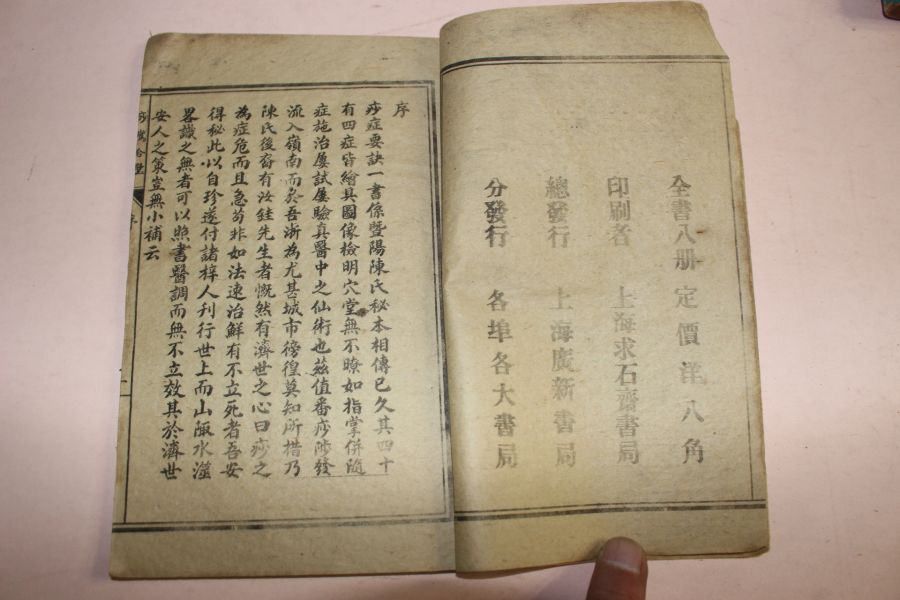 全書八册 定價洋八角
印刷者 上海求石齋書局
總發行 上海廣新書局
分發行 各埠各大書局
序
痧症要訣一書係暨陽陳氏秘本相傳已久其四十
有四症皆繪具圖像檢明穴堂無不暸如指掌併隨
症施治屢試屢驗真醫中之仙術也茲值番痧陟發
流入嶺南而於吾浙為尤甚城市徬徨莫知所措乃
陳氏後裔有汝銈先生者慨然有濟世之心曰痧之
為症危而且急苟非如法速治鮮有不立死者吾安
得秘此以自珍遂付諸梓人刊行世上而山陬水澨
畧識之無者可以照書醫調而無不立效其於濟世
安人之策豈無小補云
序